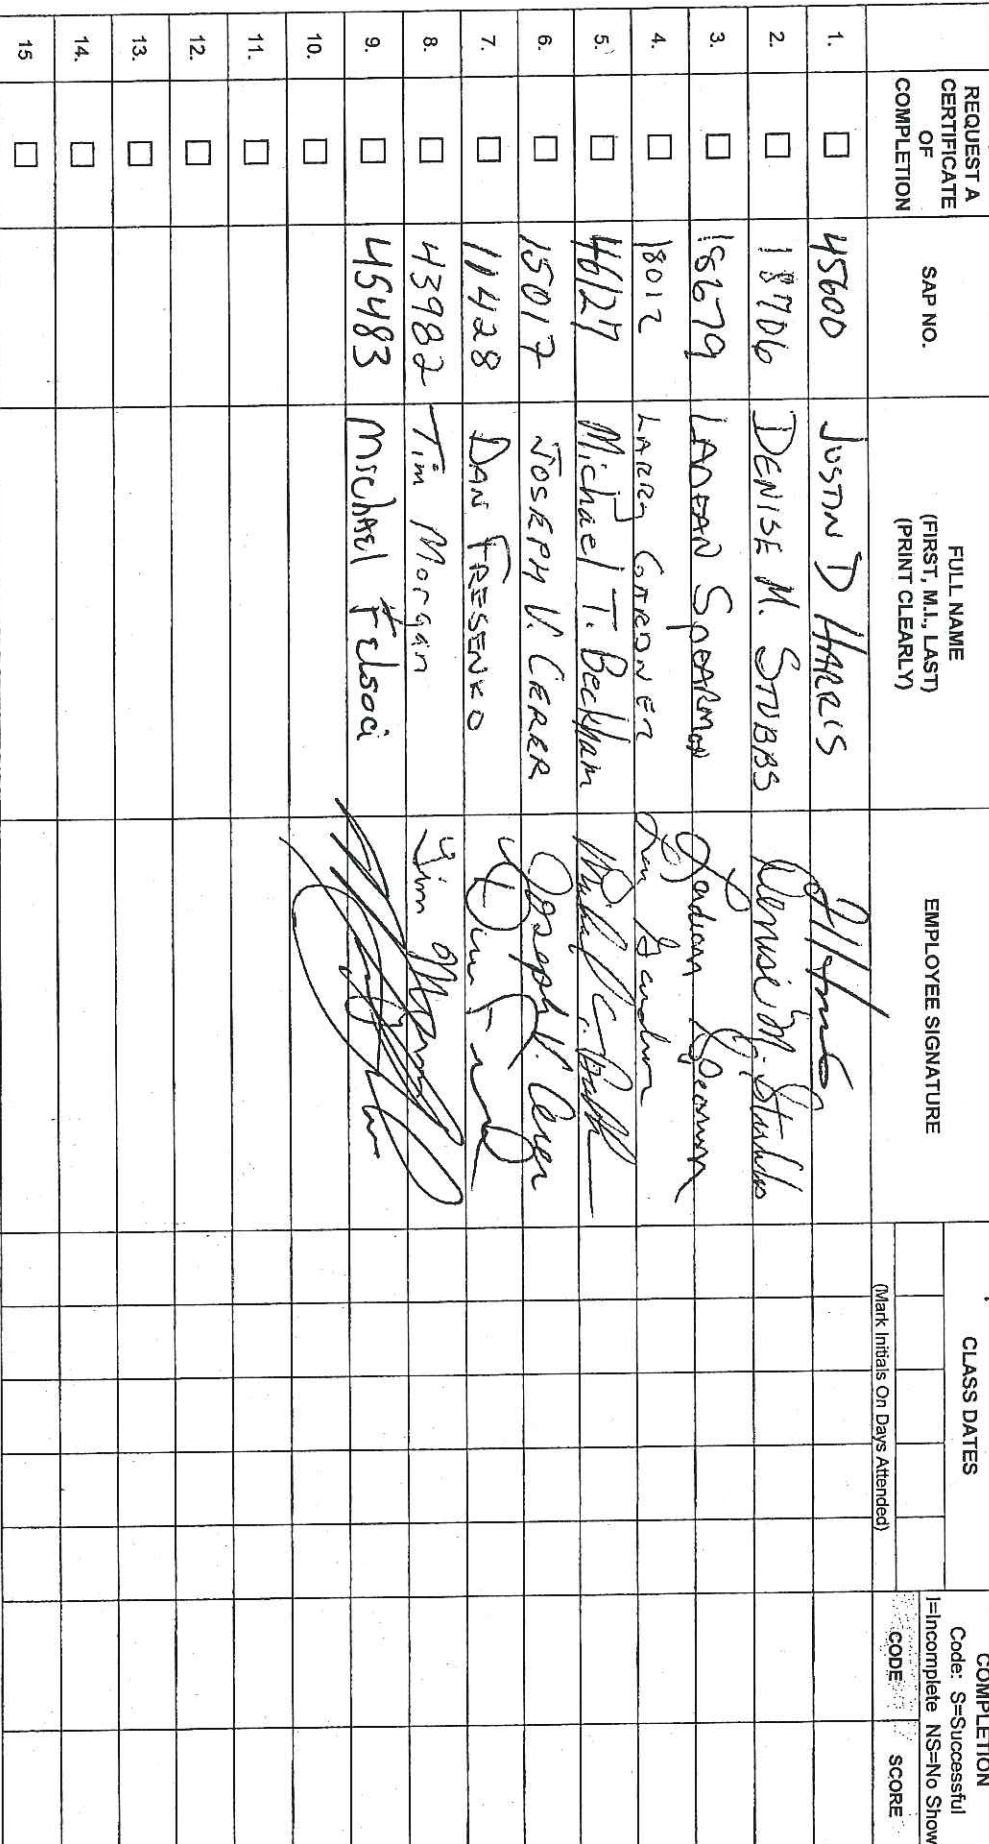 REQUEST A CERTIFICATE OF COMPLETION
SAP NO.
FULL NAME
(FIRST, M.I., LAST)
(PRINT CLEARLY)
EMPLOYEE SIGNATURE
CLASS DATES
(Mark Initials On Days Attended)
COMPLETION
Code: S=Successful
I=Incomplete NS=No Show
CODE SCORE
1. 45600 JUSTIN D HARRIS
2. 18706 DENISE M. STUBBS Denise M. Stubbs
3. 18679 LADEAN SPEARMAN Ladean Spearman
4. 18012 LARRY GARDNER
5. 46127 Michael T. Beckham
6. 15017 JOSEPH V. CERER Joseph V. Cerer
7. 11428 DAN FRESENKO
8. 43982 Tim Morgan Tim Morgan
9. 45483 Michael Felsoci
10.
11.
12.
13.
14.
15